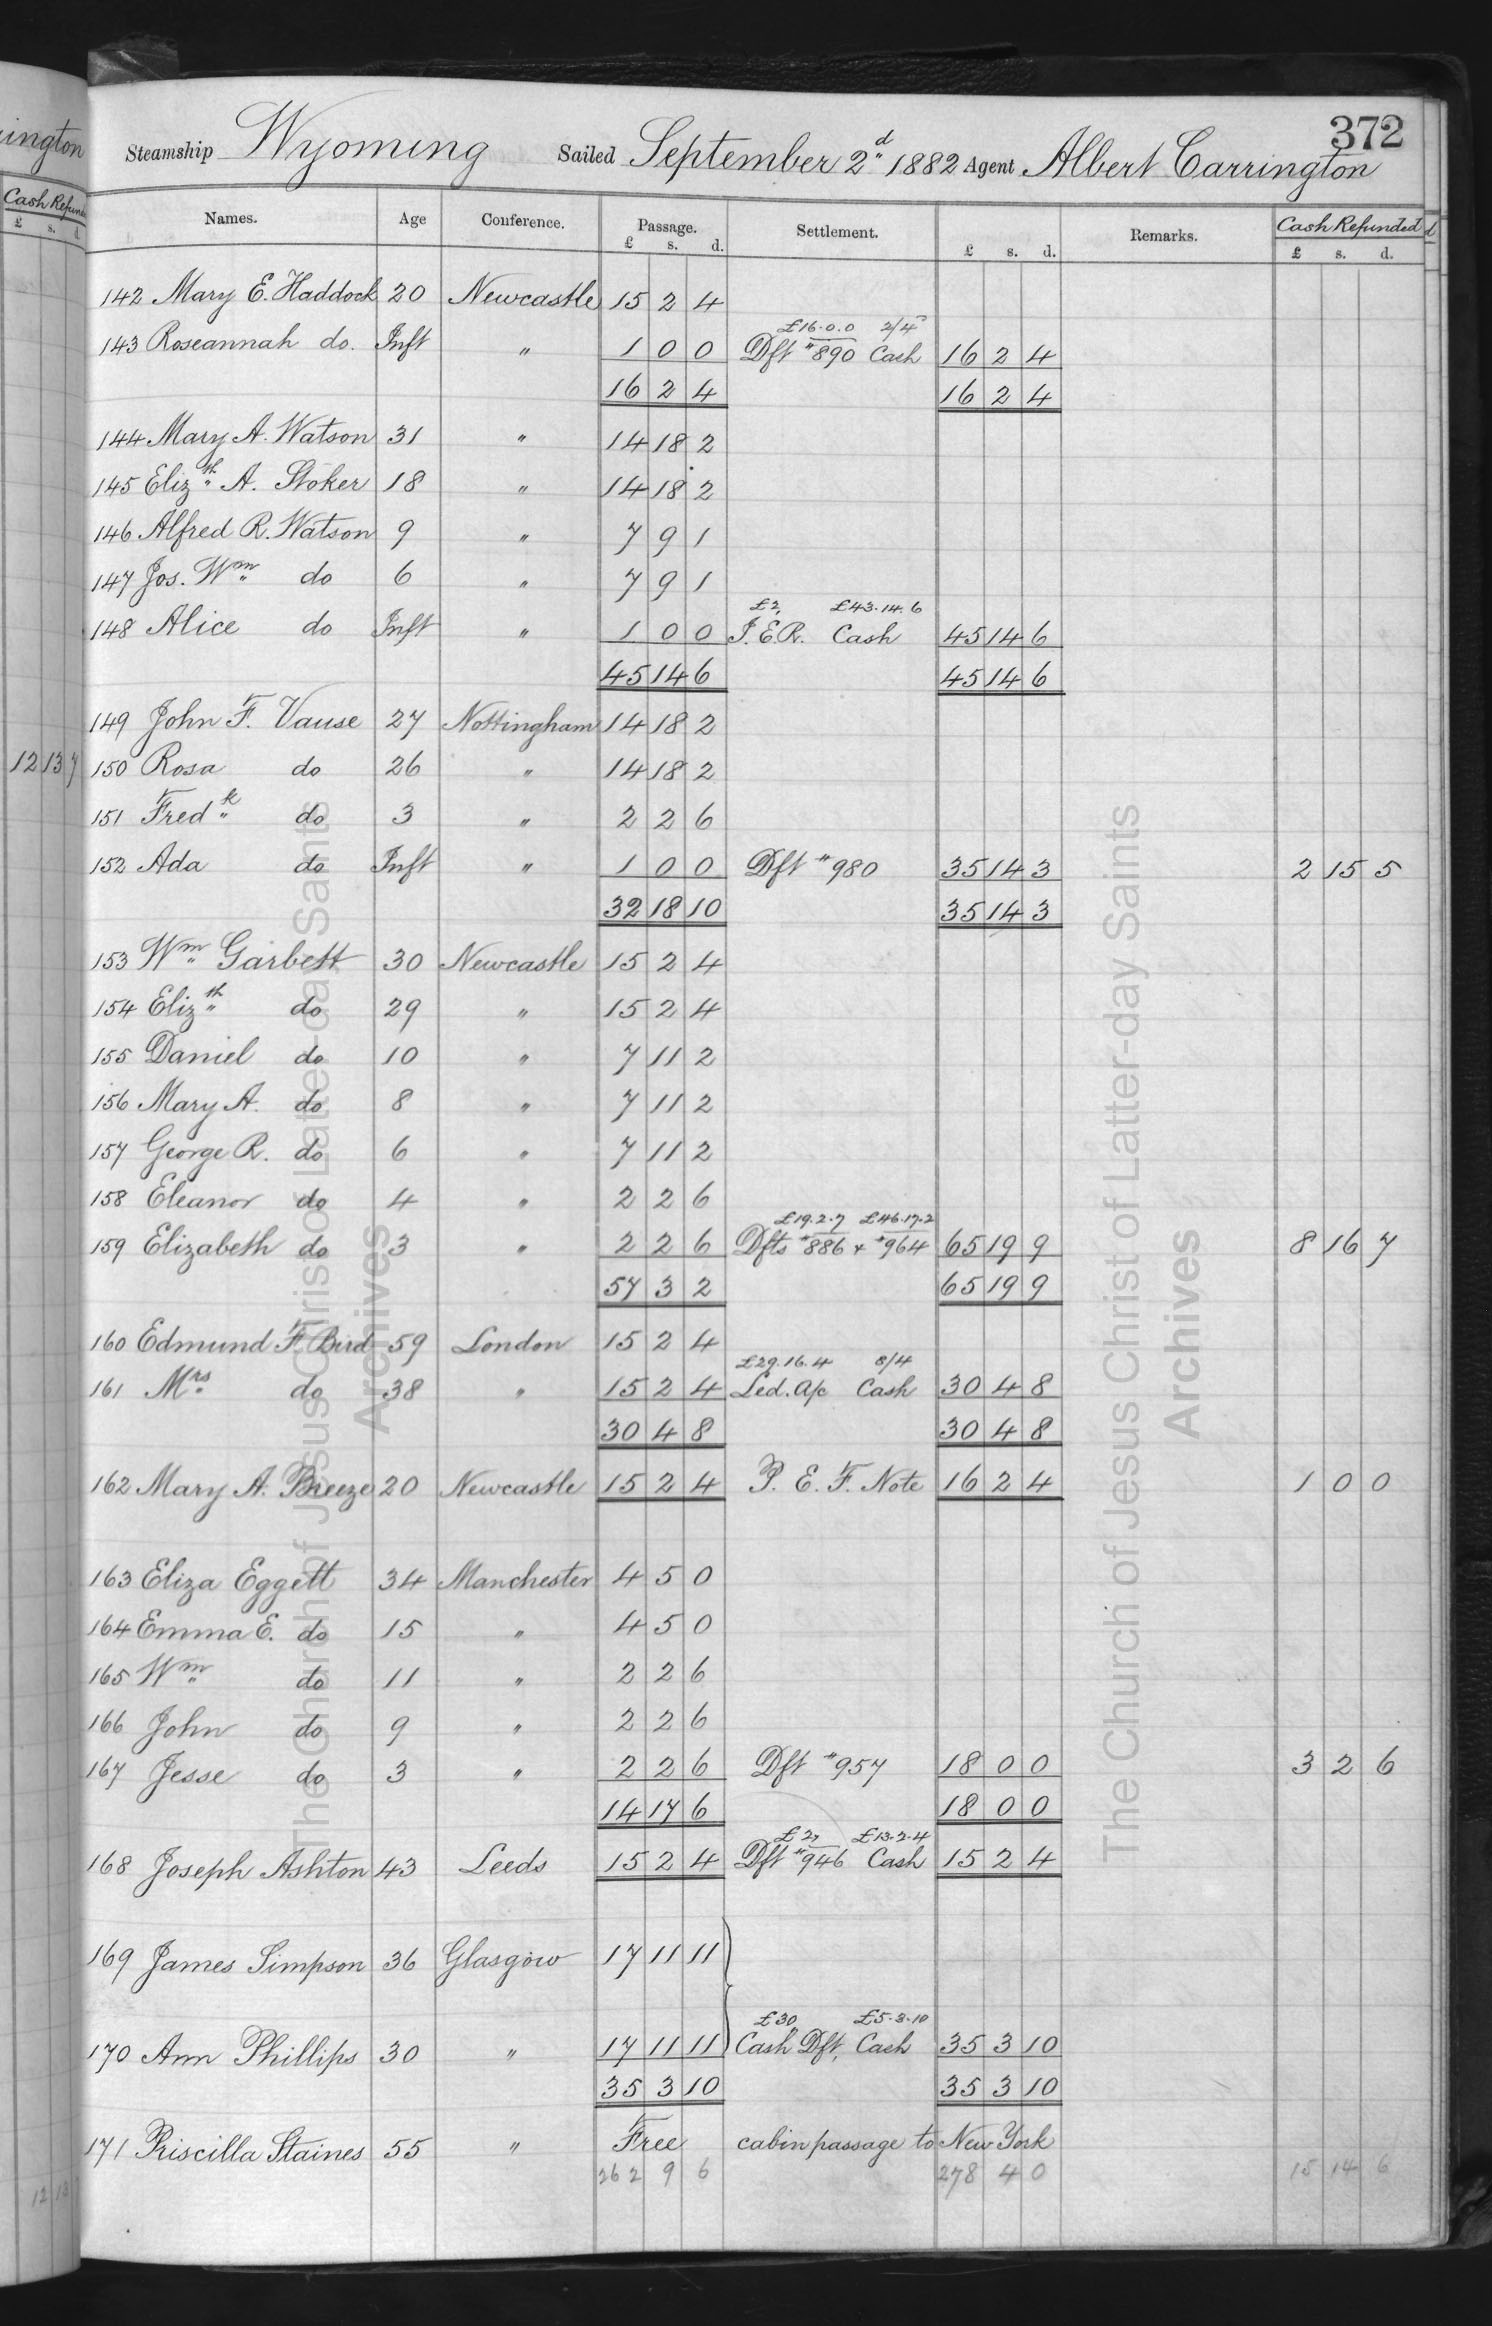 ington
372
Steamship Wyoming Sailed September 2"d 1882 Agent Albert Carrington
Cash Refund
£ s. d
Names. Age Conference. Passage. £ s. d. Settlement. £ s. d. Remarks. Cash Refunded £ s. d.
142 Mary E. Haddock 20 Newcastle 15 2 4
£16.0.0 2/4
143 Roseannah do. Inft " 1 0 0 Dft "890 Cash 16 2 4
16 2 4 16 2 4
144 Mary A. Watson 31 " 14 18 2
145 Eliz"th A. Stoker 18 " 14 18 2
146 Alfred R. Watson 9 " 7 9 1
147 Jos. Wm do 6 " 7 9 1
£2, £43.14.6
148 Alice do Inft " 1 0 0 I.E.R. Cash 45 14 6
45 14 6 45 14 6
149 John F. Vause 27 Nottingham 14 18 2
12 13 7
150 Rosa do 26 " 14 18 2
151 Fred"k do 3 " 2 2 6
152 Ada do Inft " 1 0 0 Dft "980 35 14 3 2 15 5
32 18 10 35 14 3
153 Wm Garbett 30 Newcastle 15 2 4
154 Eliz"th do 29 " 15 2 4
155 Daniel do 10 " 7 11 2
156 Mary A. do 8 " 7 11 2
157 George R. do 6 " 7 11 2
158 Eleanor do 4 " 2 2 6
£19.2.7 £46.17.2
159 Elizabeth do 3 " 2 2 6 Dfts "886 + "964 65 19 9 8 16 7
57 3 2 65 19 9
160 Edmund F. Bird 59 London 15 2 4
£29.16.4 8/4
161 Mrs do 38 " 15 2 4 Led. a/c Cash 30 4 8
30 4 8 30 4 8
162 Mary A. Breeze 20 Newcastle 15 2 4 P. E. F. Note 16 2 4 1 0 0
163 Eliza Eggett 34 Manchester 4 5 0
164 Emma E. do 15 " 4 5 0
165 Wm do 11 " 2 2 6
166 John do 9 " 2 2 6
167 Jesse do 3 " 2 2 6 Dft "957 18 0 0 3 2 6
14 17 6 18 0 0
£2, £13.2.4
168 Joseph Ashton 43 Leeds 15 2 4 Dft "946 Cash 15 2 4
169 James Simpson 36 Glasgow 17 11 11
£30, £5.3.10
170 Ann Phillips 30 " 17 11 11 Cash Dft, Cash 35 3 10
35 3 10 35 3 10
171 Priscilla Staines 55 " Free cabin passage to New York
262 9 6 278 4 0 15 14 6
12 13
The Church of Jesus Christ of Latter-day Saints
Archives
The Church of Jesus Christ of Latter-day Saints
Archives